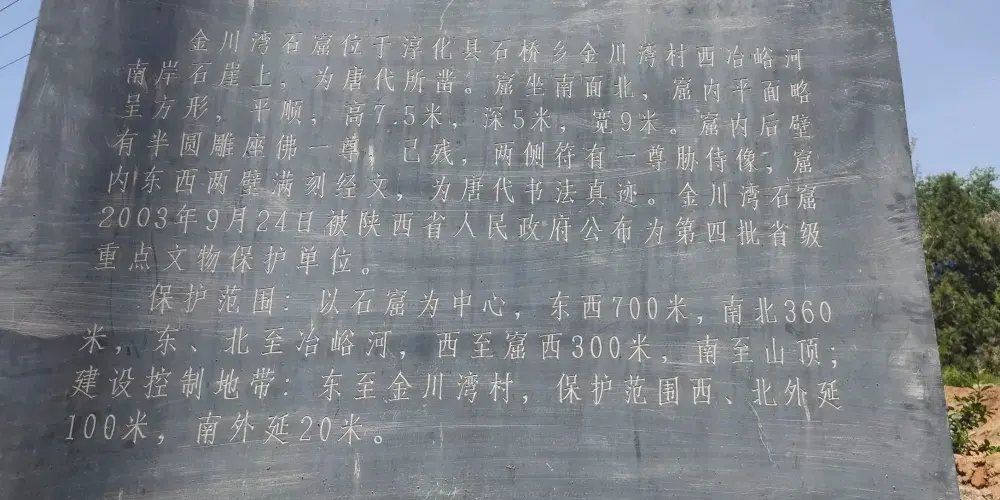 金川湾石窟位于淳化县石桥乡金川湾村西冶峪河
南岸石崖上，为唐代所凿。窟坐南面北，窟内平面略
呈方形，平顺，高7.5米，深5米，宽9米。窟内后壁
有半圆雕座佛一尊，已残，两侧符有一尊胁侍像，窟
内东西两壁满刻经文，为唐代书法真迹。金川湾石窟
2003年9月24日被陕西省人民政府公布为第四批省级
重点文物保护单位。
保护范围：以石窟为中心，东西700米，南北360
米，东、北至冶峪河，西至窟西300米，南至山顶；
建设控制地带：东至金川湾村，保护范围西、北外延
100米，南外延20米。